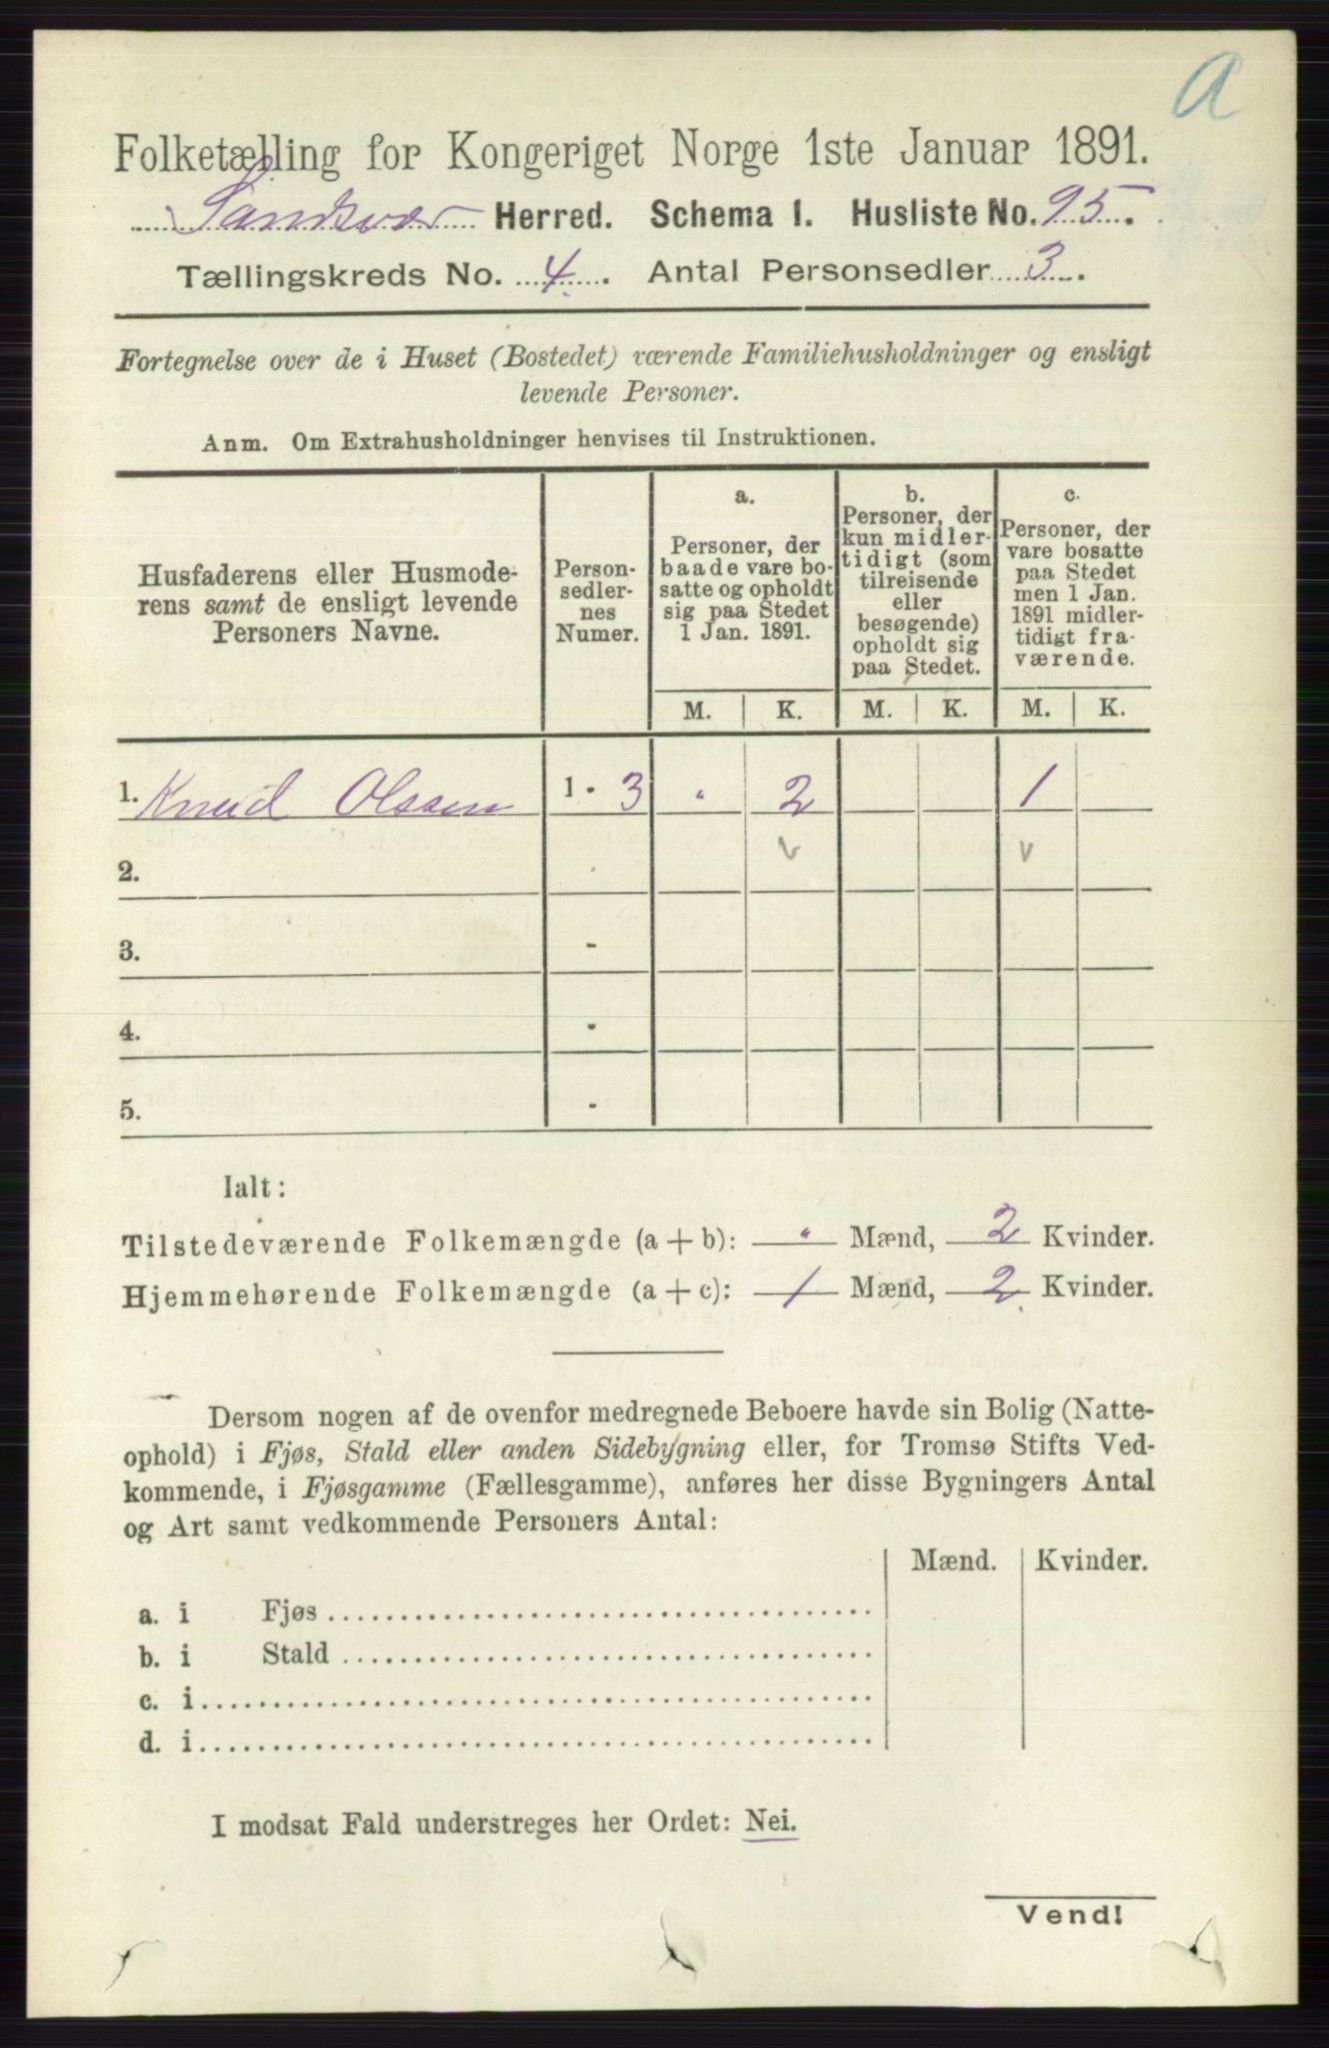 A
Folketælling for Kongeriget Norge 1ste Januar 1891.
Sandsvær Herred. Schema 1. Husliste No. 95.
Tællingskreds No. 4. Antal Personsedler 3.
Fortegnelse over de i Huset (Bostedet) værende Familiehusholdninger og ensligt
levende Personer.
Anm. Om Extrahusholdninger henvises til Instruktionen.
Husfaderens eller Husmode-
rens samt de ensligt levende
Personers Navne.
Person-
sedler-
nes
Numer.
a.
Personer, der
baade vare bo-
satte og opholdt
sig paa Stedet
1 Jan. 1891.
b.
Personer, der
kun midler-
tidigt (som
tilreisende
eller
besøgende)
opholdt sig
paa Stedet.
c.
Personer, der
vare bosatte
paa Stedet
men 1 Jan.
1891 midler-
tidigt fra-
værende.
M. K. M. K. M. K.
1. Knud Olssen 1 - 3 " 2 1
2.
3. -
4. -
5. -
Ialt:
Tilstedeværende Folkemængde (a + b): " Mænd, 2 Kvinder.
Hjemmehørende Folkemængde (a + c): 1 Mænd, 2 Kvinder.
Dersom nogen af de ovenfor medregnede Beboere havde sin Bolig (Natte-
ophold) i Fjøs, Stald eller anden Sidebygning eller, for Tromsø Stifts Ved-
kommende, i Fjøsgamme (Fællesgamme), anføres her disse Bygningers Antal
og Art samt vedkommende Personers Antal:
Mænd. Kvinder.
a. i Fjøs
b. i Stald
c. i
d. i
I modsat Fald understreges her Ordet: Nei.
Vend!